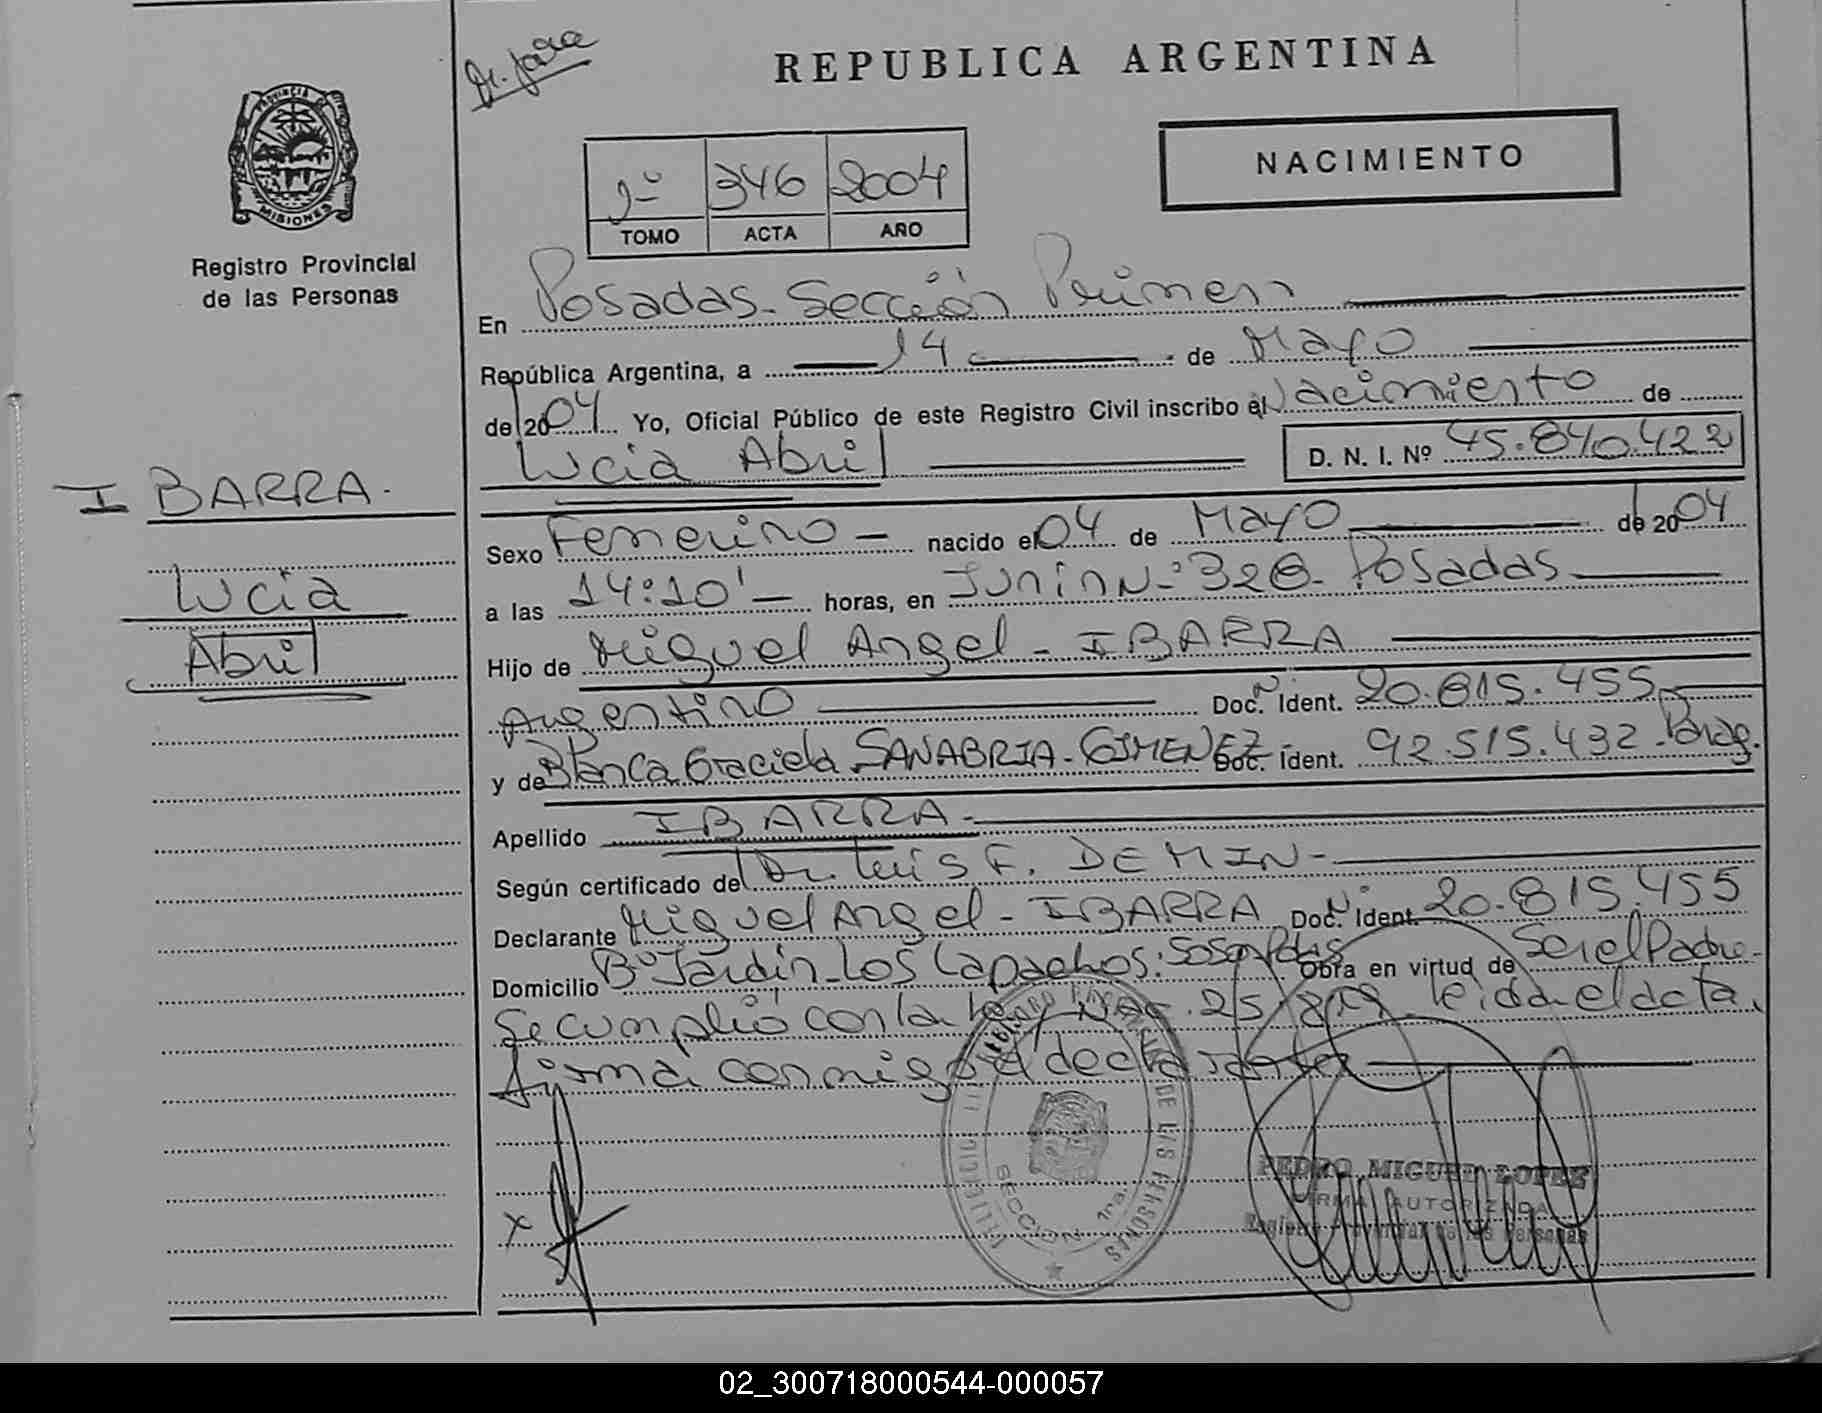 REPUBLICA ARGENTINA
NACIMIENTO
PROVINCIA DE
MISIONES
Registro Provincial
de las Personas
346 2004
TOMO ACTA AÑO
En Posadas - Sección Primera
República Argentina, a 14 de Mayo
de 2004 Yo, Oficial Público de este Registro Civil inscribo el Nacimiento de
Lucia Abril D. N. I. Nº 45.840.422
IBARRA.
Lucia
Abril
Sexo Femenino - nacido el 04 de Mayo de 2004
a las 14:10' - horas, en Junin Nº 328 - Posadas
Hijo de Miguel Angel - IBARRA
Argentino Doc. N Ident. 20.815.455
y de Blanca Graciela SANABRIA - GIMENEZ Doc. Ident. 92.515.432 - Parag.
Apellido IBARRA -
Según certificado del Dr. Luis F. DEMIN -
Declarante Miguel Angel - IBARRA Doc. N Ident. 20.815.455
Domicilio Bº Jardin - Los Lapachos: Pdas Obra en virtud de Ser el Padre -
Se cumplió con la Ley Nac. leida el acta,
firma conmigo el declarante
x
SECCION 1ra.
DE LAS PERSONAS
PEDRO MIGUEL LOPEZ
FIRMA AUTORIZADA
Registro Provincial de las Personas
02_300718000544-000057